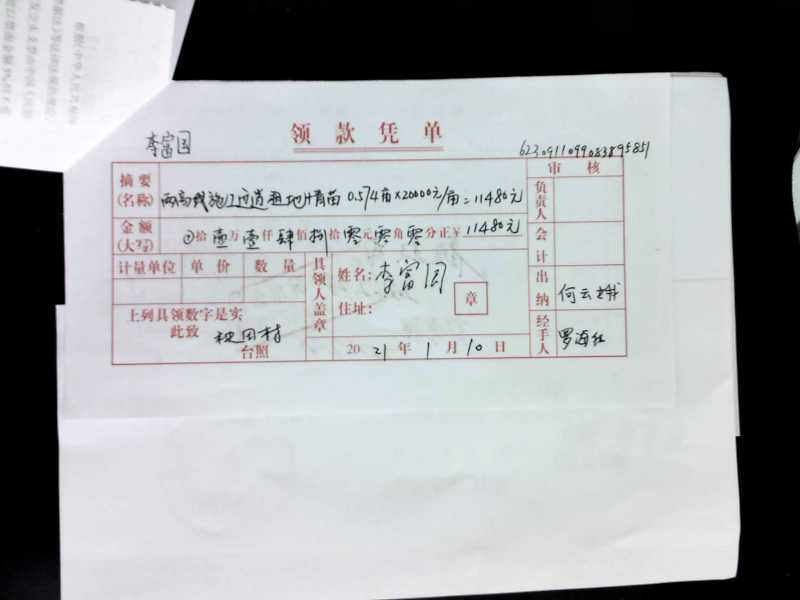 李富国
领款凭单
6230911099083895851
审核
摘要(名称) 两高线施工便道租地付青苗 0.574亩×20000元/亩=11480元
负责人
金额(大写) 拾壹万壹仟肆佰捌拾零元零角零分正¥11480元
会计
计量单位 单价 数量
具领人盖章
姓名:李富国
住址:
章
出纳 何云
上列具领数字是实
此致 田村
台照
2021年1月10日
经手人 罗海红